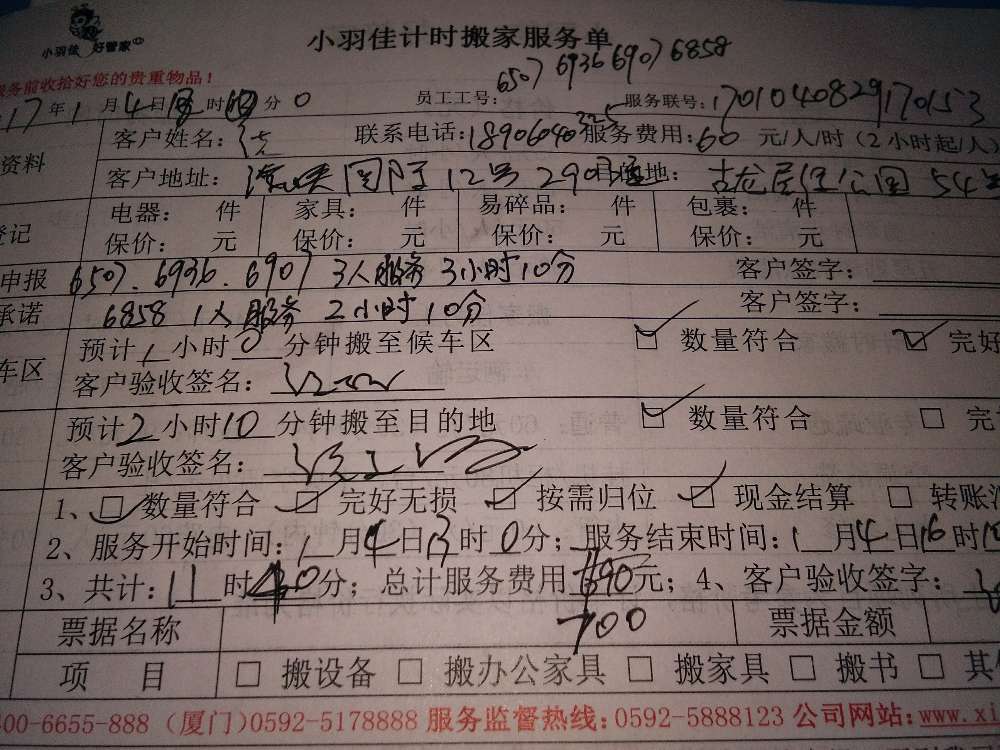 小羽佳 好管家
小羽佳计时搬家服务单
服务前收拾好您的贵重物品！
17年1月4日 时 分0 员工工号：6507 6936 6907 6858 服务联号：17010408291 70153
资料 客户姓名： 联系电话：18906040325 服务费用：60元/人/时（2小时起/人）
客户地址： 12号290 地：古龙居住公园 54
登记 电器： 件 家具： 件 易碎品： 件 包裹： 件
保价： 元 保价： 元 保价： 元 保价： 元
申报 6507.6936.6907 3人服务 3小时10分 客户签字：
承诺 6858 1人服务 2小时10分 客户签字：
车区 预计1小时0分钟搬至候车区 数量符合 完好
客户验收签名：
预计2小时10分钟搬至目的地 数量符合 完
客户验收签名：
1、 数量符合 完好无损 按需归位 现金结算 转账
2、服务开始时间：1月4日13时0分；服务结束时间：1月4日16时
3、共计：11时40分；总计服务费用690元；4、客户验收签字：
700
票据名称 票据金额
项 目 搬设备 搬办公家具 搬家具 搬书 其
00-6655-888 (厦门)0592-5178888 服务监督热线：0592-5888123 公司网站：www.xi